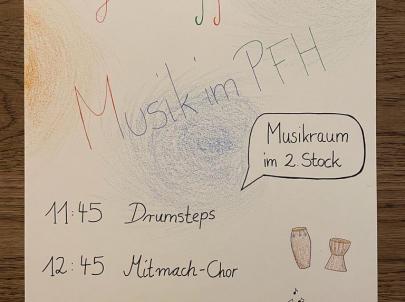 Musik im PFH
Musikraum
im 2. Stock
11:45 Drumsteps
12:45 Mitmach-Chor